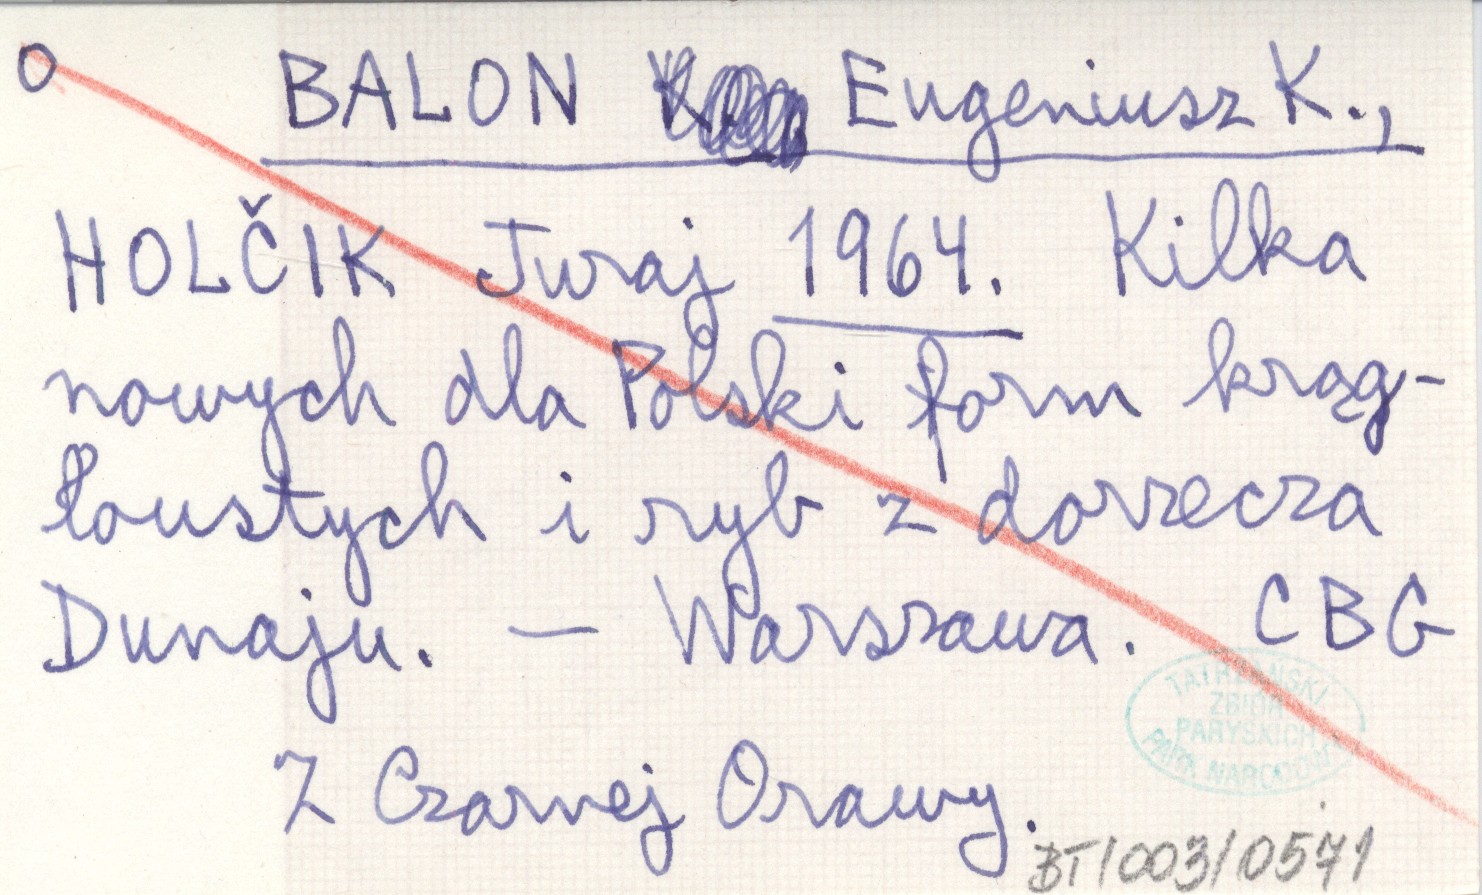 O BALON Eugeniusz K.,
HOLČIK Juraj 1964. Kilka
nowych dla Polski form krąg-
łoustych i ryb z dorzecza
Dunaju. — Warszawa. CBG
TATRZAŃSKI
ZBIÓR
PARYSKICH
PARK NARODOWY
Z Czarnej Orawy.
BT/003/0571